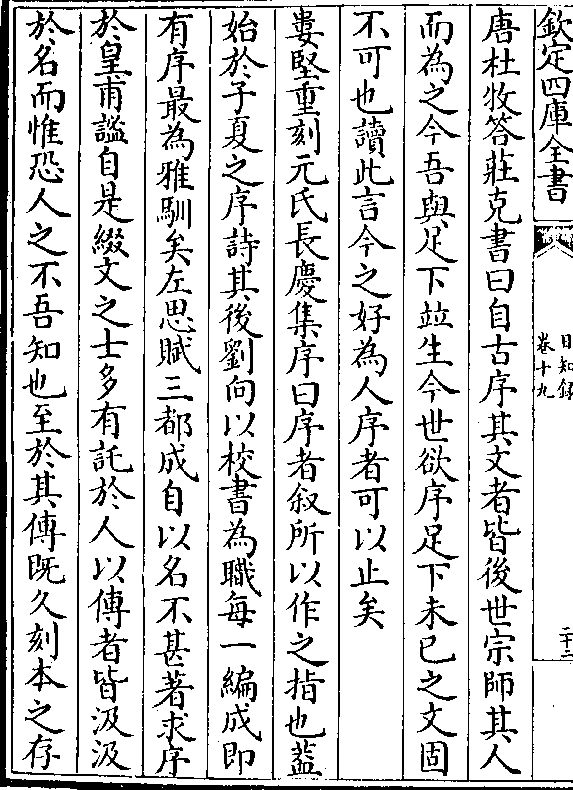 欽定四庫全書
日知錄
卷十九
二十二
唐杜牧答莊克書曰自古序其文者皆後世宗師其人
而為之今吾與足下並生今世欲序足下未已之文固
不可也讀此言今之好為人序者可以止矣
婁堅重刻元氏長慶集序曰序者叙所以作之指也葢
始於子夏之序詩其後劉向以校書為職每一編成即
有序最為雅馴矣左思賦三都成自以名不甚著求序
於皇甫謐自是綴文之士多有託於人以傳者皆汲汲
於名而惟恐人之不吾知也至於其傳既久刻本之存